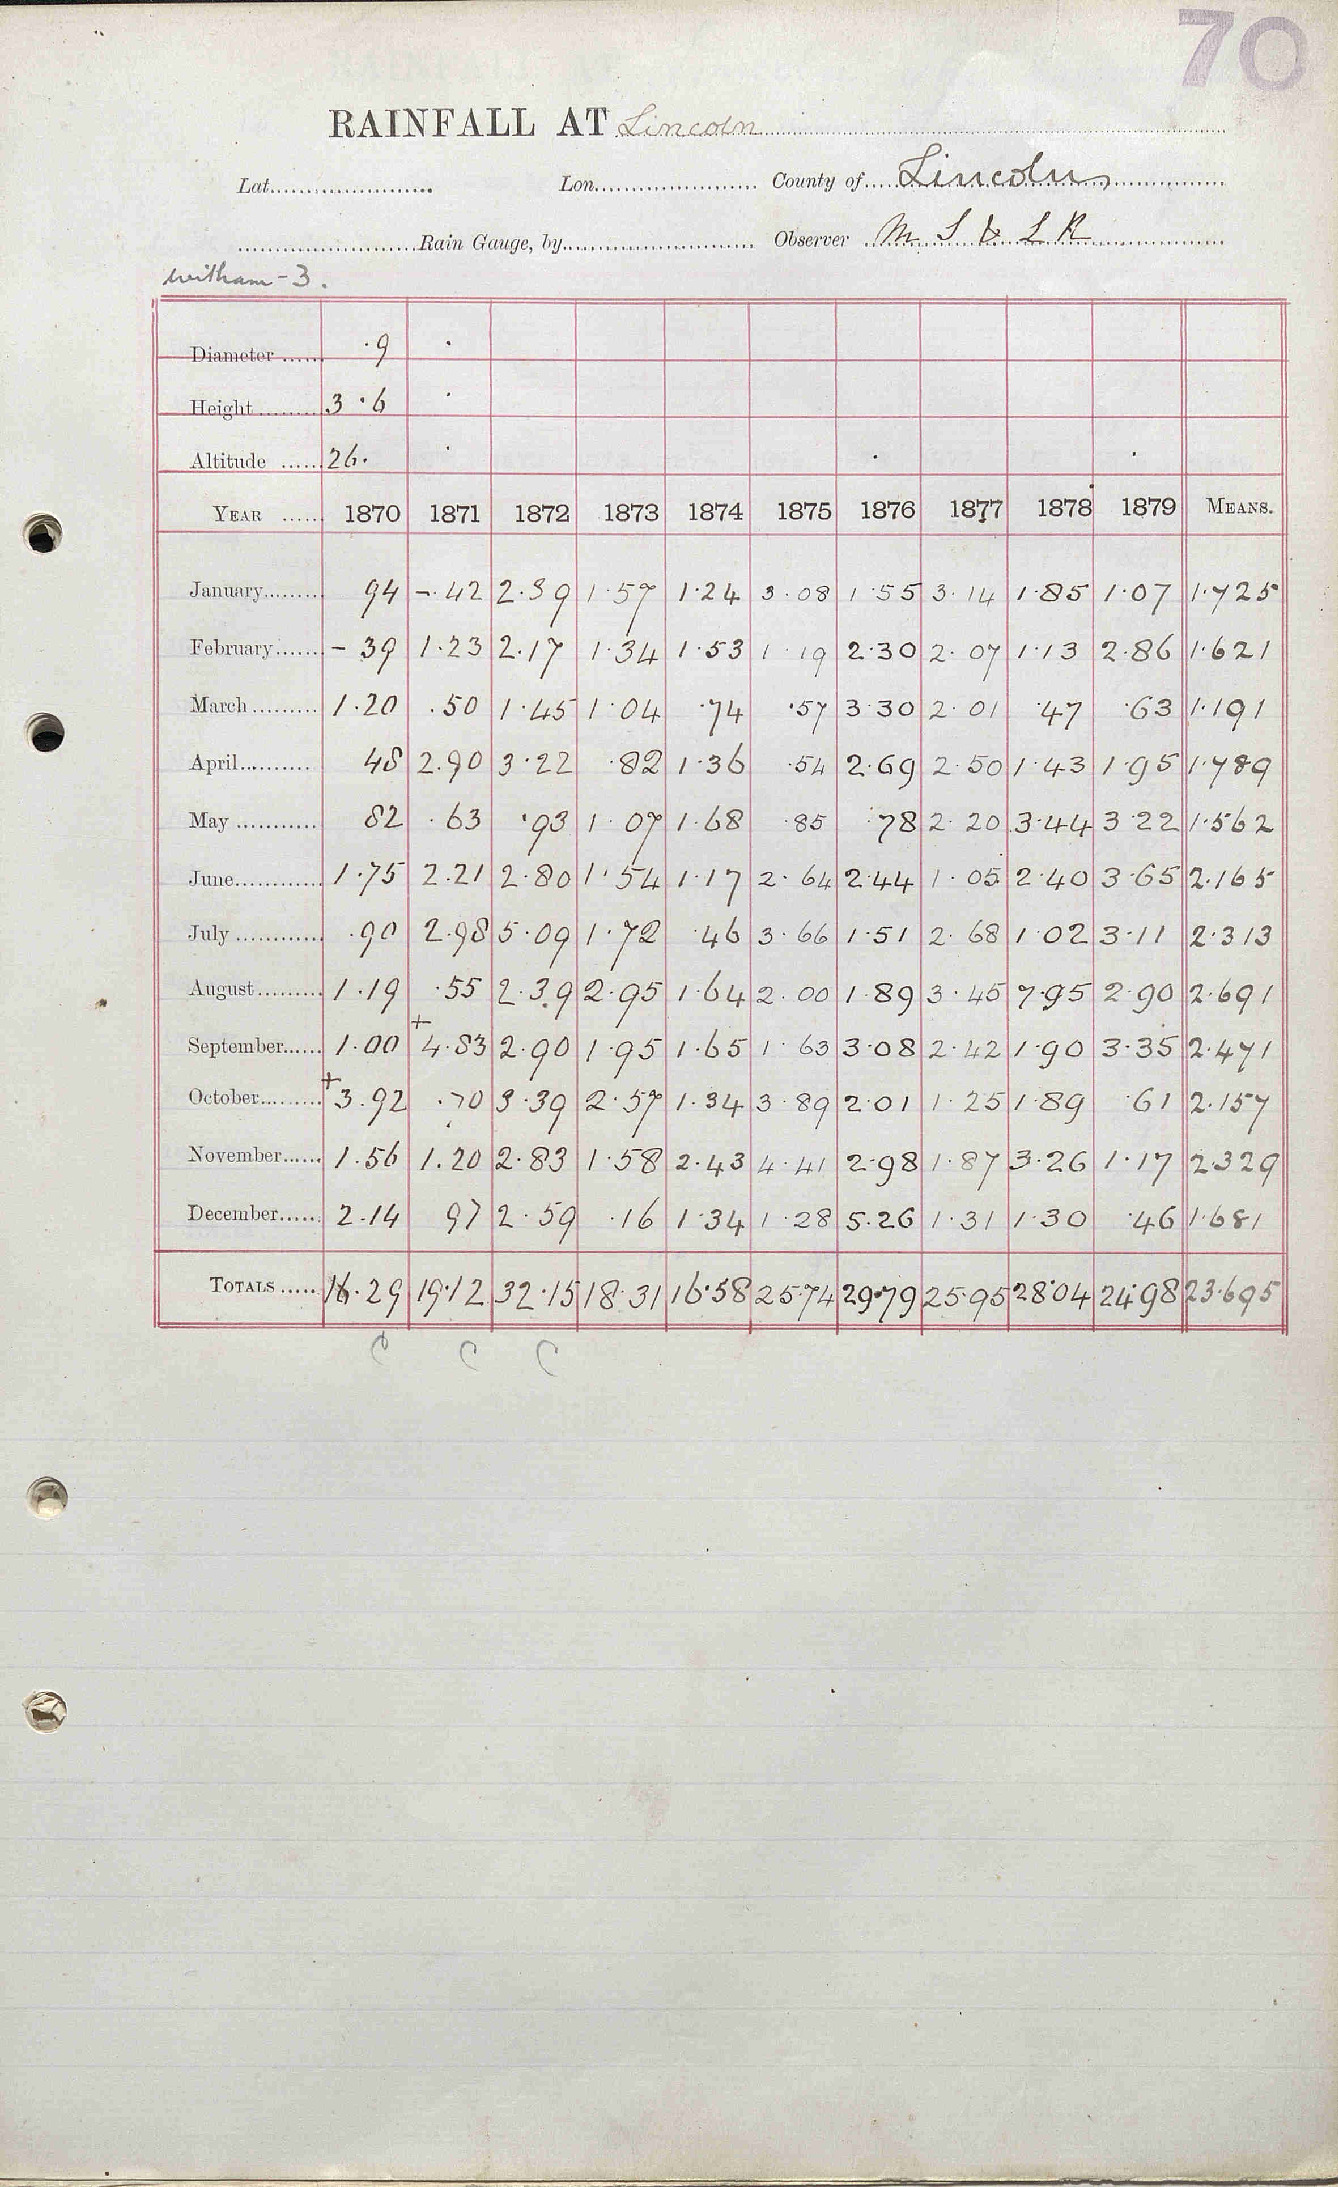 70
RAINFALL AT Lincoln
Lat. Lon. County of Lincoln
Rain Gauge, by Observer M S & L R
Witham - 3.
Diameter ·9
Height 3·6
Altitude 26·
YEAR 1870 1871 1872 1873 1874 1875 1876 1877 1878 1879 MEANS.
January 94 -·42 2·39 1·57 1·24 3·08 1·55 3·14 1·85 1·07 1·725
February - 39 1·23 2·17 1·34 1·53 1·19 2·30 2·07 1·13 2·86 1·621
March 1·20 ·50 1·45 1·04 ·74 ·57 3·30 2·01 ·47 ·63 1·191
April 48 2·90 3·22 ·82 1·36 ·54 2·69 2·50 1·43 1·95 1·789
May 82 ·63 ·93 1·07 1·68 ·85 ·78 2·20 3·44 3·22 1·562
June 1·75 2·21 2·80 1·54 1·17 2·64 2·44 1·05 2·40 3·65 2·165
July ·90 2·98 5·09 1·72 ·46 3·66 1·51 2·68 1·02 3·11 2·313
August 1·19 ·55 2·39 2·95 1·64 2·00 1·89 3·45 7·95 2·90 2·691
September 1·00 +4·83 2·90 1·95 1·65 1·63 3·08 2·42 1·90 3·35 2·471
October +3·92 ·70 3·39 2·57 1·34 3·89 2·01 1·25 1·89 ·61 2·157
November 1·56 1·20 2·83 1·58 2·43 4·41 2·98 1·87 3·26 1·17 2·329
December 2·14 97 2·59 ·16 1·34 1·28 5·26 1·31 1·30 ·46 1·681
TOTALS 16·29 19·12 32·15 18·31 16·58 25·74 29·79 25·95 28·04 24·98 23·695
C C C